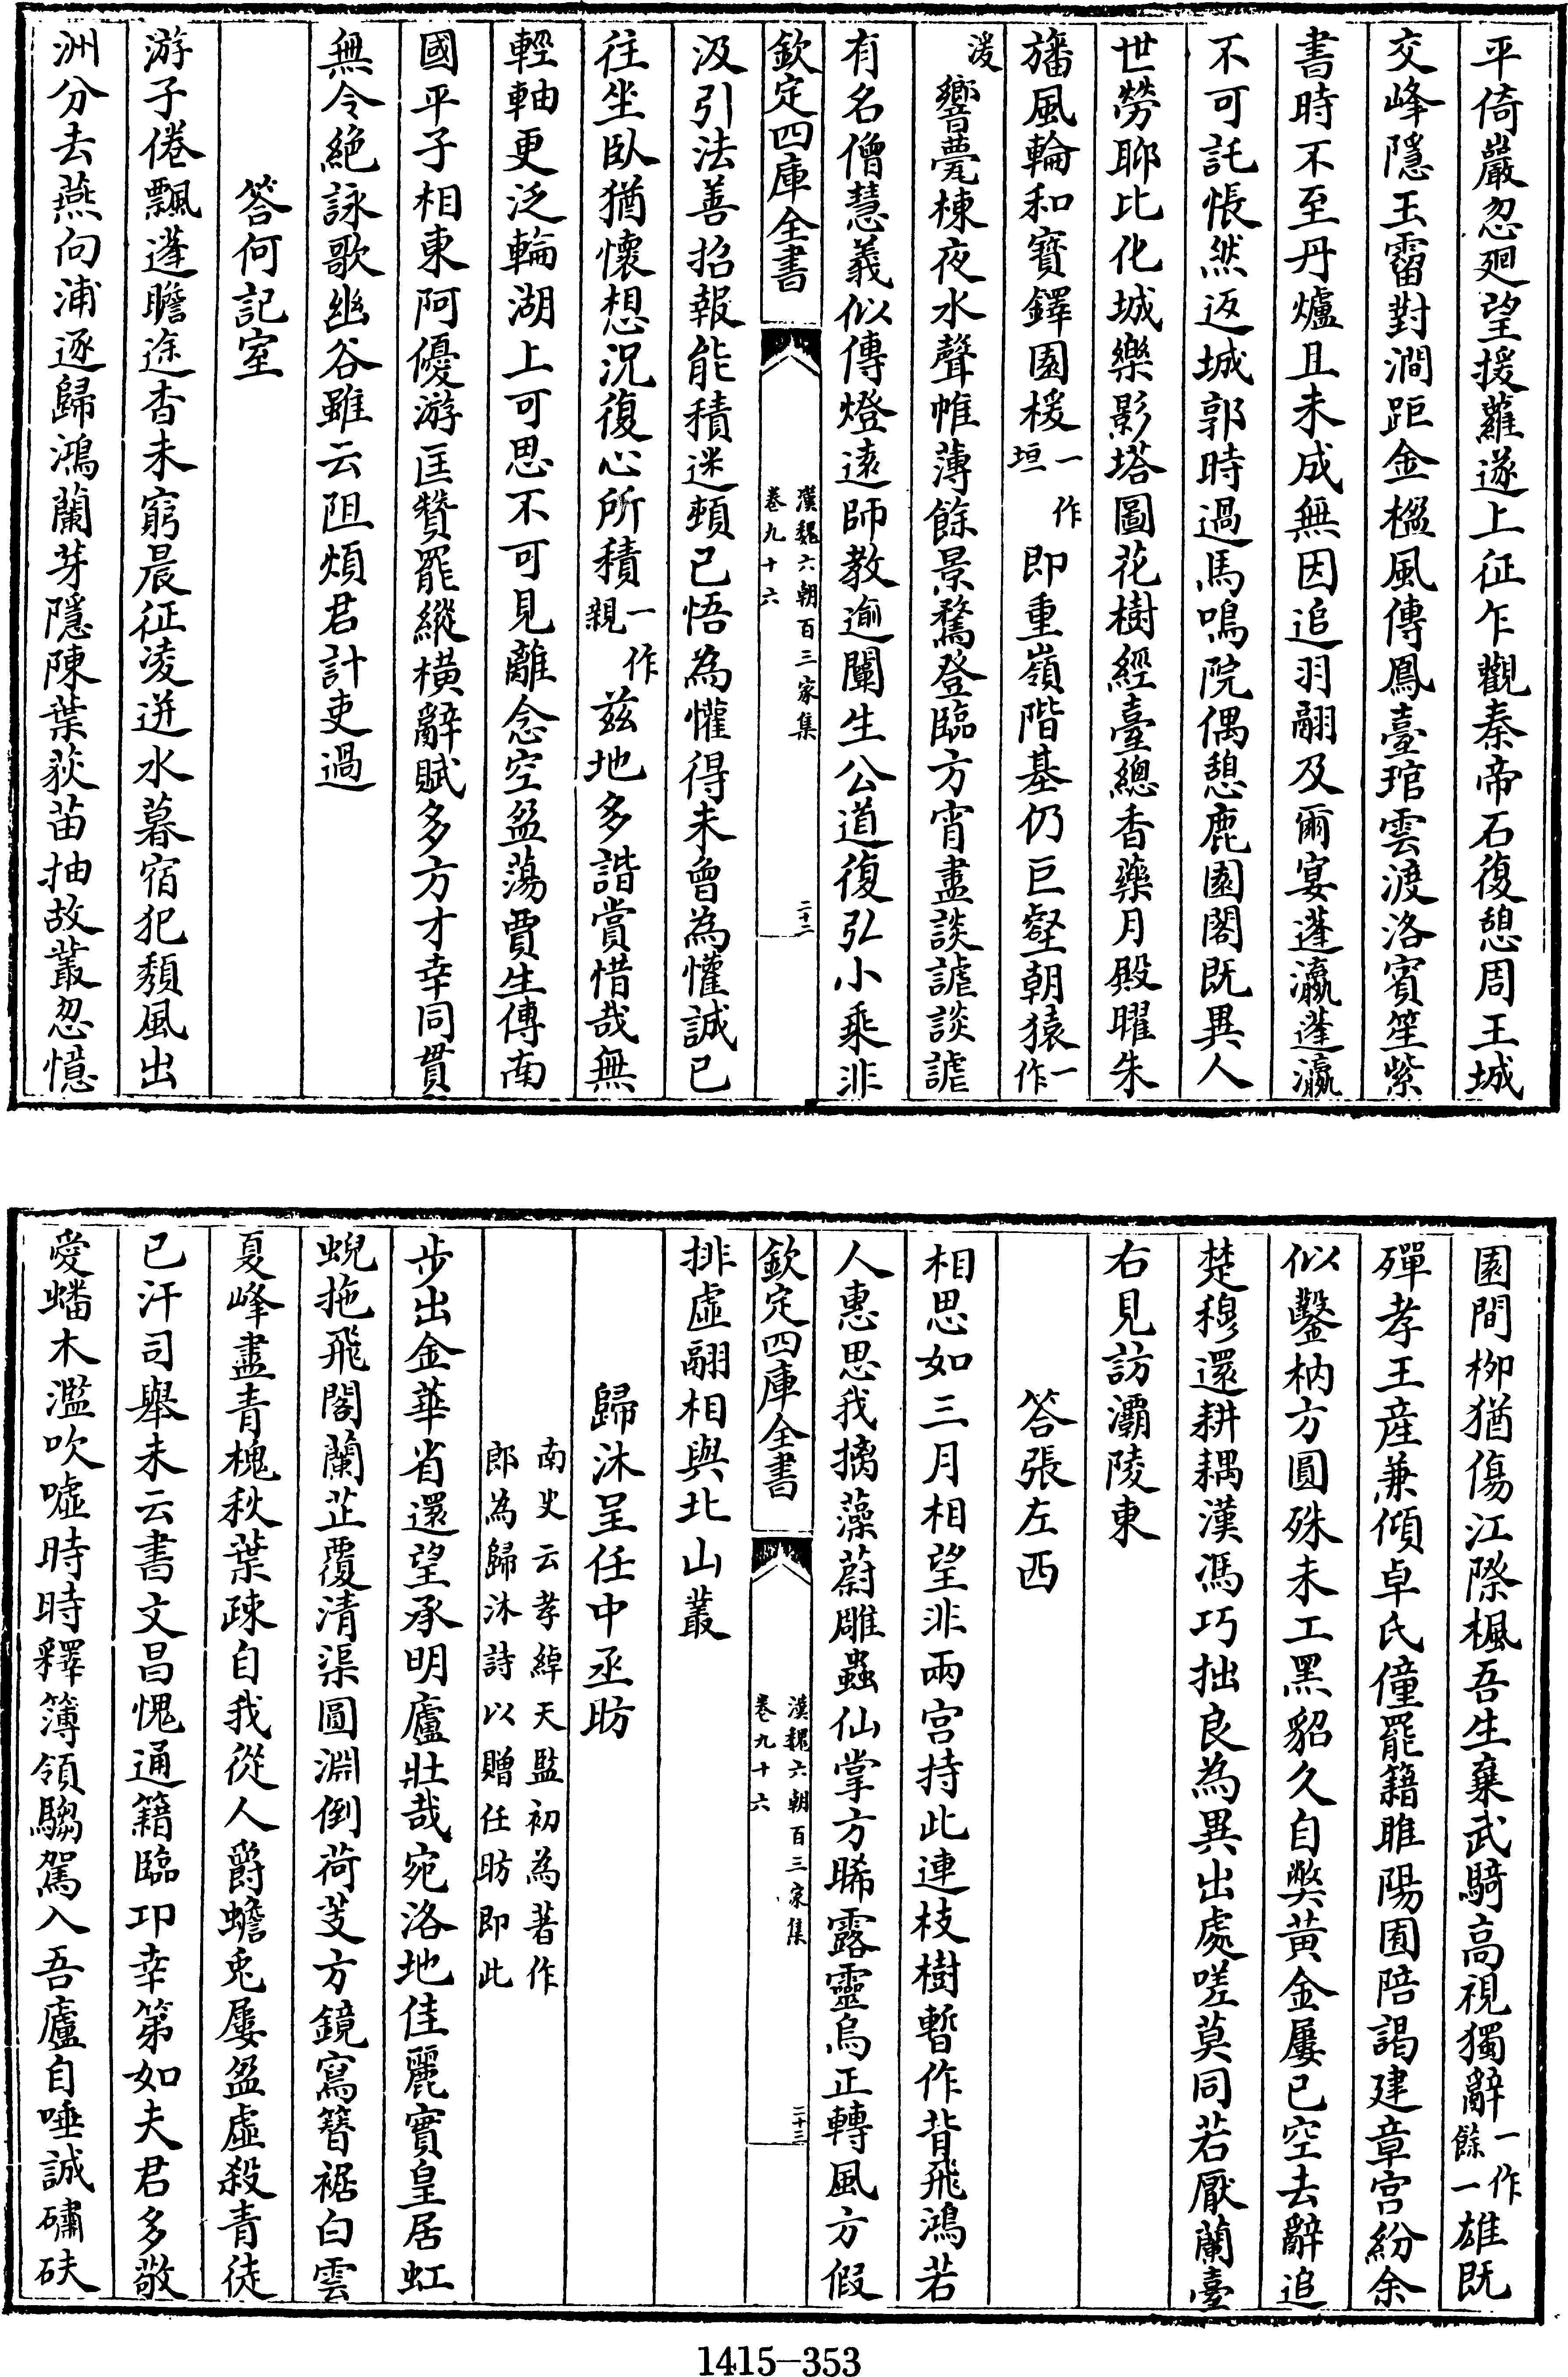 平倚巖忽廻望援蘿遂上征乍觀秦帝石復憩周王城
交峰隱玉霤對澗距金楹風傳鳳臺琯雲渡洛賓笙紫
書時不至丹爐且未成無因追羽翮及爾宴蓬瀛蓬瀛
不可託悵然返城郭時過馬鳴院偶憩鹿園閣既異人
世勞聊比化城樂影塔圖花樹經臺總香藥月殿曜朱
旛風輪和寶鐸園楥一作垣即重嶺階基仍巨壑朝猿一作
湲響甍棟夜水聲帷薄餘景騖登臨方宵盡談謔談謔
有名僧慧義似傳燈遠師教逾闡生公道復弘小乘非
欽定四庫全書 漢魏六朝百三家集 卷九十六 二十二
汲引法善招報能積迷頓已悟為懽得未曾為懽誠已
往坐臥猶懷想況復心所積一作親茲地多諧賞惜哉無
輕軸更泛輪湖上可思不可見離念空盈蕩賈生傳南
國平子相東阿優游匡贊罷縱橫辭賦多方才幸同貫
無令絕詠歌幽谷雖云阻煩君計吏過
答何記室
游子倦飄蓬瞻途杳未窮晨征凌迸水暮宿犯頽風出
洲分去燕向浦逐歸鴻蘭芽隱陳葉荻苗抽故叢忽憶
園間柳猶傷江際楓吾生棄武騎高視獨辭一作餘一雄既
殫孝王産兼傾卓氏僮罷籍睢陽囿陪謁建章宮紛余
似鑿枘方圓殊未工黑貂久自弊黃金屢已空去辭追
楚穆還耕耦漢馮巧拙良為異出處嗟莫同若厭蘭臺
右見訪灞陵東
答張左西
相思如三月相望非兩宮持此連枝樹暫作背飛鴻若
人惠思我摛藻蔚雕蟲仙掌方晞露靈烏正轉風方假
欽定四庫全書 漢魏六朝百三家集 卷九十六 二十三
排虛翮相與北山叢
歸沐呈任中丞昉
南史云孝綽天監初為著作
郎為歸沐詩以贈任昉即此
步出金華省還望承明廬壯哉宛洛地佳麗實皇居虹
蜺拖飛閣蘭芷覆清渠圓淵倒荷芰方鏡寫簪裾白雲
夏峰盡青槐秋葉疎自我從人爵蟾兎屢盈虛殺青徒
已汗司舉未云書文昌愧通籍臨邛幸第如夫君多敬
愛蟠木濫吹噓時時釋簿領騶駕入吾廬自唾誠礴砆